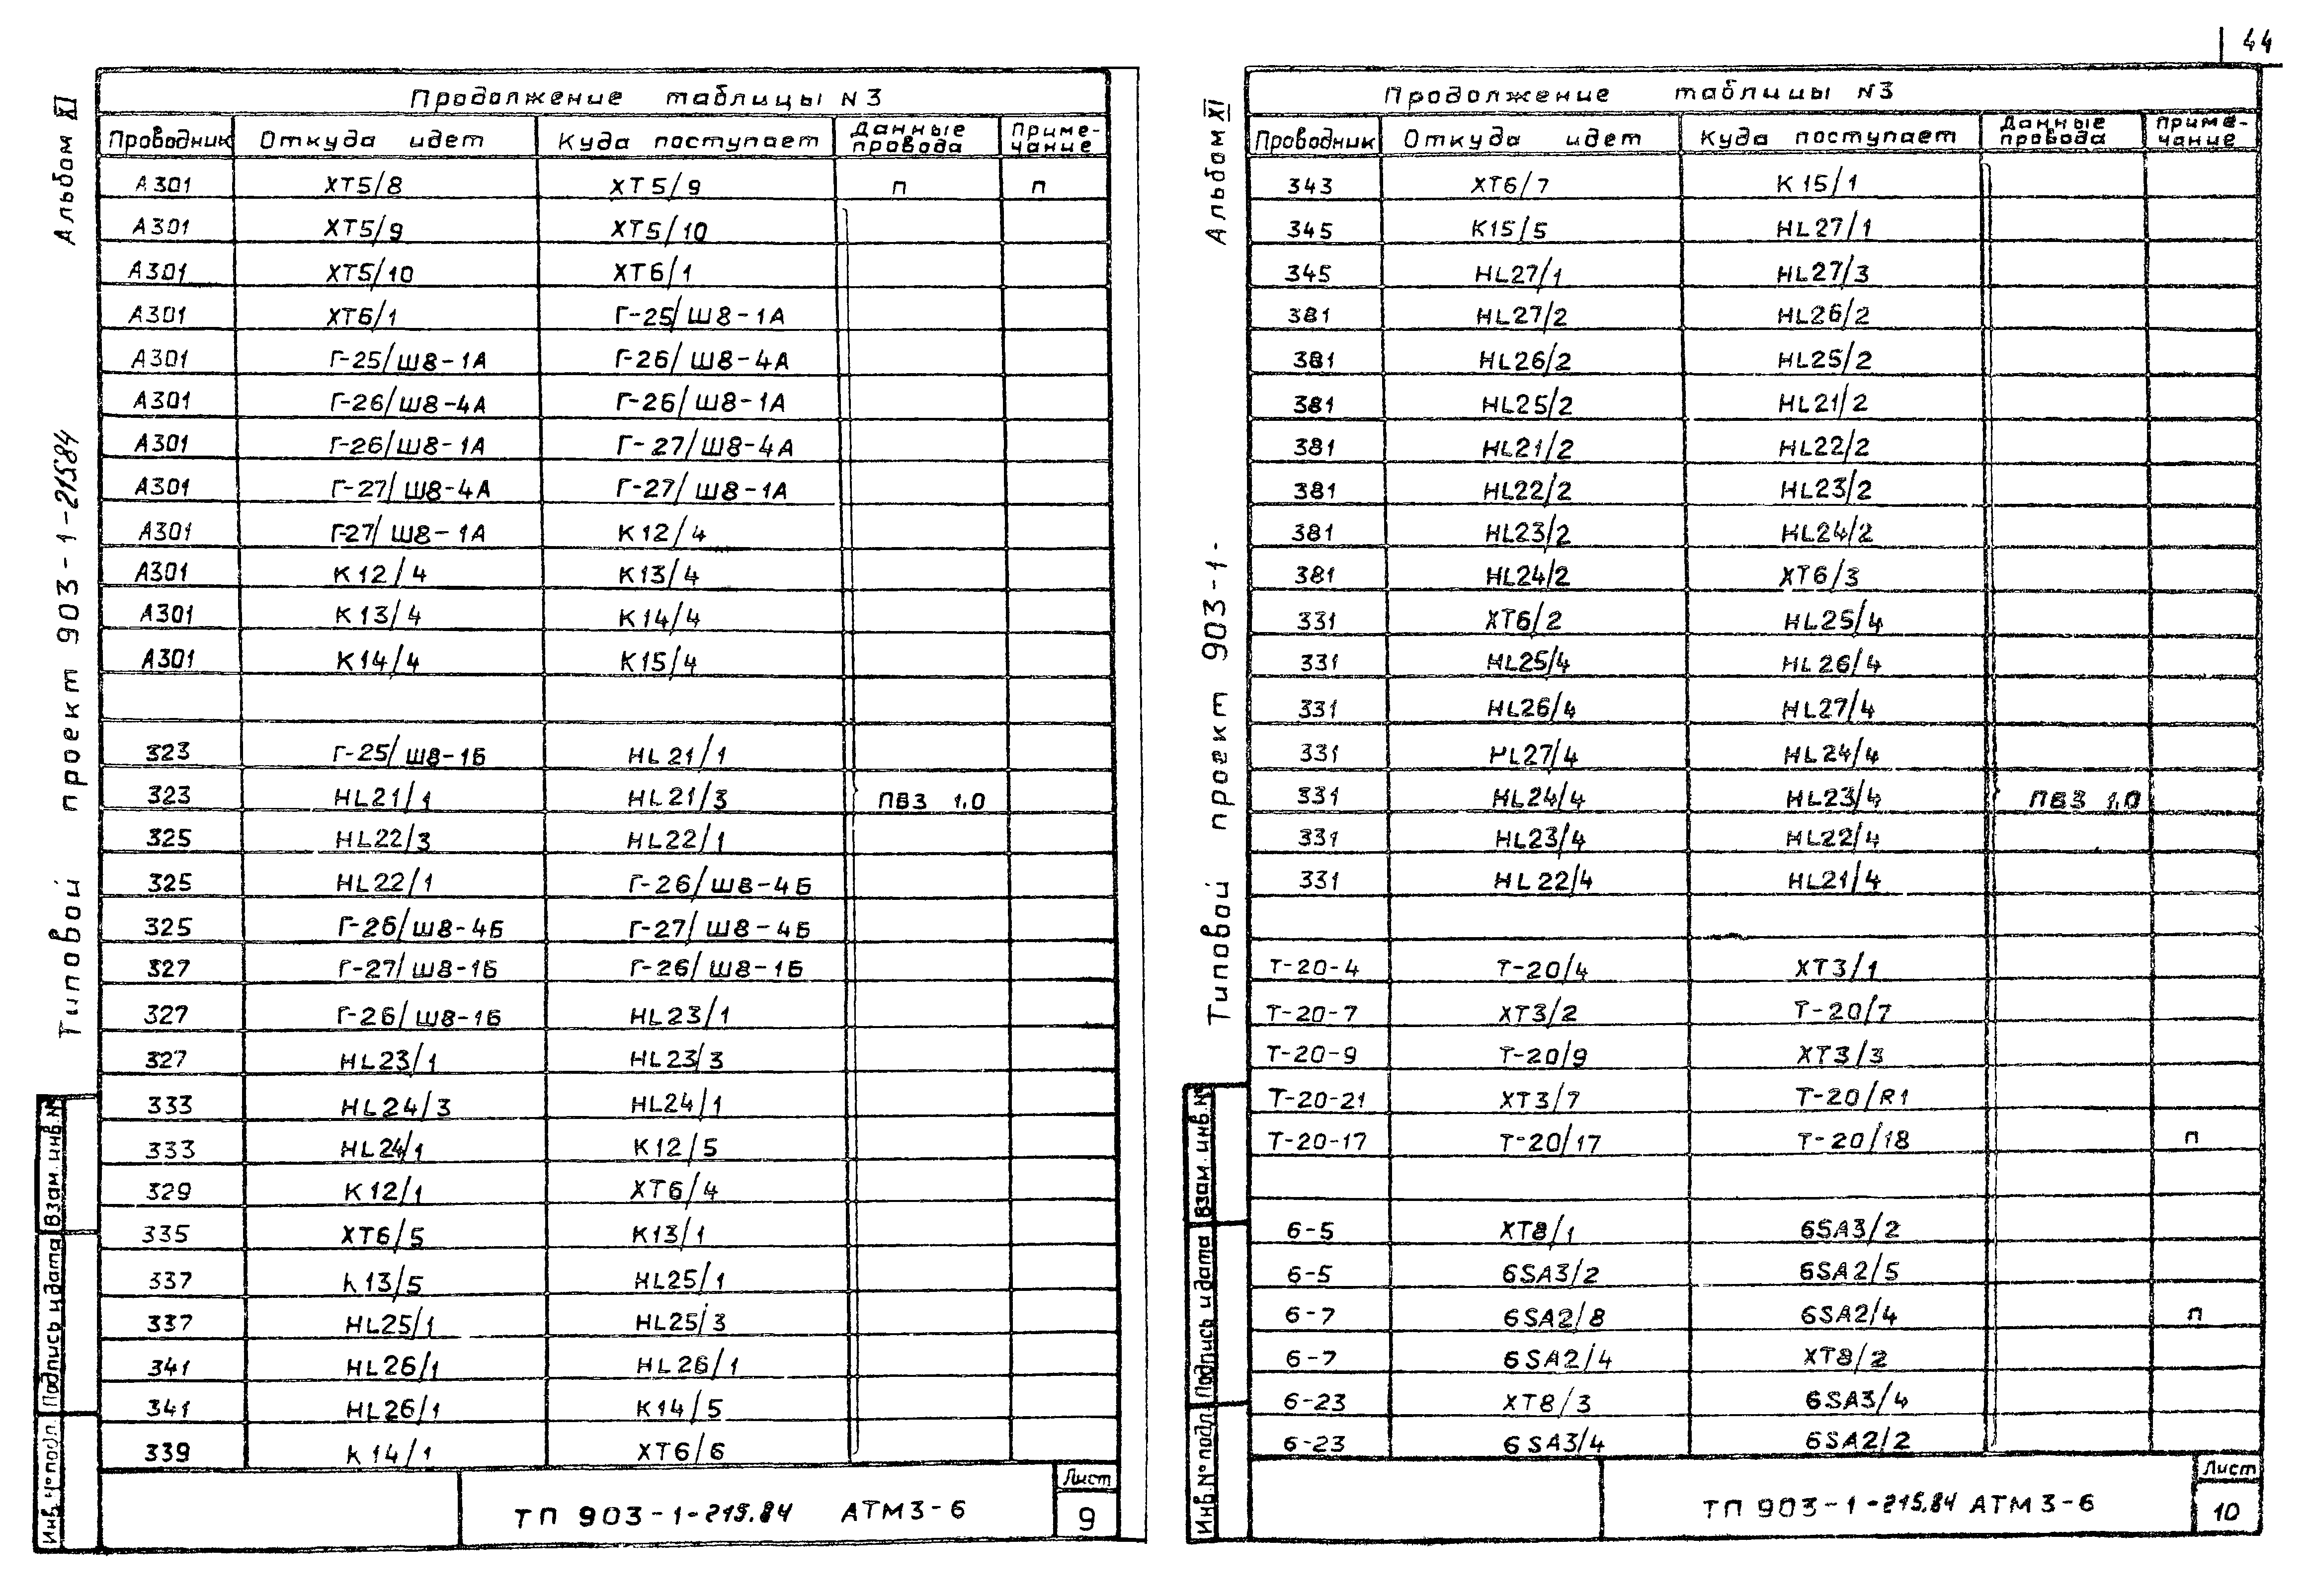 44
Альбом XI
Типовой проект 903-1-215.84
Продолжение таблицы N3
Проводник Откуда идет Куда поступает Данные провода Приме-чание
А301 ХТ5/8 ХТ5/9 п п
А301 ХТ5/9 ХТ5/10
А301 ХТ5/10 ХТ6/1
А301 ХТ6/1 Г-25/Ш8-1А
А301 Г-25/Ш8-1А Г-26/Ш8-4А
А301 Г-26/Ш8-4А Г-26/Ш8-1А
А301 Г-26/Ш8-1А Г-27/Ш8-4А
А301 Г-27/Ш8-4А Г-27/Ш8-1А
А301 Г-27/Ш8-1А К12/4
А301 К12/4 К13/4
А301 К13/4 К14/4
А301 К14/4 К15/4
323 Г-25/Ш8-1Б HL21/1
323 HL21/1 HL21/3 ПВ3 1,0
325 HL22/3 HL22/1
325 HL22/1 Г-26/Ш8-4Б
325 Г-26/Ш8-4Б Г-27/Ш8-4Б
327 Г-27/Ш8-1Б Г-26/Ш8-1Б
327 Г-26/Ш8-1Б HL23/1
327 HL23/1 HL23/3
333 HL24/3 HL24/1
333 HL24/1 К12/5
329 К12/1 ХТ6/4
335 ХТ6/5 К13/1
337 К13/5 HL25/1
337 HL25/1 HL25/3
341 HL26/1 HL26/1
341 HL26/1 К14/5
339 К14/1 ХТ6/6
Взам. инв. №
Подпись и дата
Инв. № подл.
ТП 903-1-215.84 АТМ3-6
Лист
9
Альбом XI
Типовой проект 903-1-
Продолжение таблицы N3
Проводник Откуда идет Куда поступает Данные провода Приме-чание
343 ХТ6/7 К15/1
345 К15/5 HL27/1
345 HL27/1 HL27/3
381 HL27/2 HL26/2
381 HL26/2 HL25/2
381 HL25/2 HL21/2
381 HL21/2 HL22/2
381 HL22/2 HL23/2
381 HL23/2 HL24/2
381 HL24/2 ХТ6/3
331 ХТ6/2 HL25/4
331 HL25/4 HL26/4
331 HL26/4 HL27/4
331 HL27/4 HL24/4
331 HL24/4 HL23/4 ПВ3 1,0
331 HL23/4 HL22/4
331 HL22/4 HL21/4
Т-20-4 Т-20/4 ХТ3/1
Т-20-7 ХТ3/2 Т-20/7
Т-20-9 Т-20/9 ХТ3/3
Т-20-21 ХТ3/7 Т-20/R1
Т-20-17 Т-20/17 Т-20/18 п
6-5 ХТ8/1 6SA3/2
6-5 6SA3/2 6SA2/5
6-7 6SA2/8 6SA2/4 п
6-7 6SA2/4 ХТ8/2
6-23 ХТ8/3 6SA3/4
6-23 6SA3/4 6SA2/2
Взам. инв. №
Подпись и дата
Инв. № подл.
ТП 903-1-215.84 АТМ3-6
Лист
10